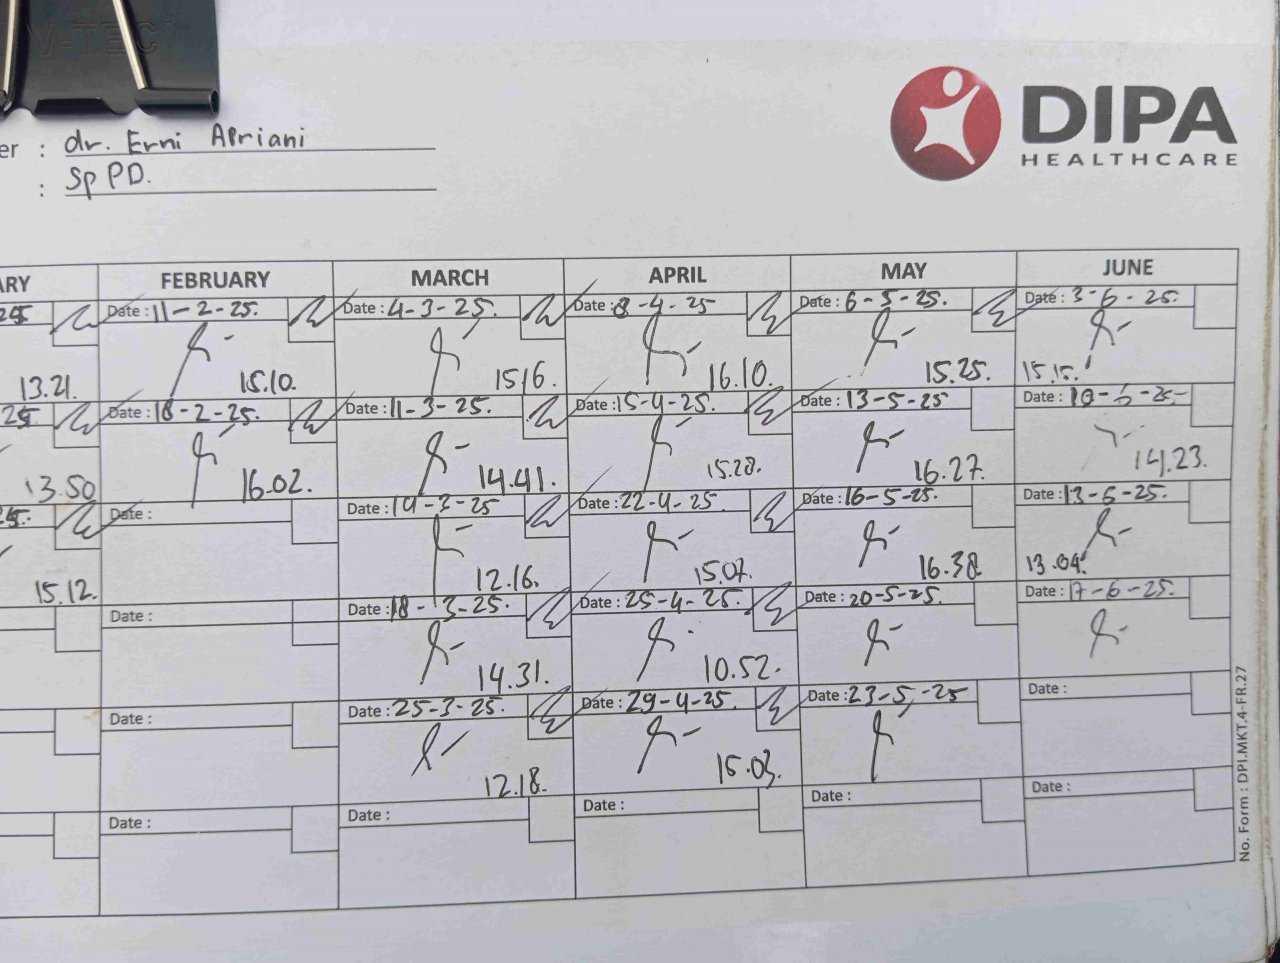 V-TEC
DIPA
HEALTHCARE
er : dr. Erni Apriani
: Sp PD.
ARY FEBRUARY MARCH APRIL MAY JUNE
25 Date : 11-2-25. Date : 4-3-25. Date : 8-4-25 Date : 6-5-25. Date : 3-6-25.
13.21. 15.10. 15.16. 16.10. 15.25. 15.15.
25 Date : 18-2-25. Date : 11-3-25. Date : 15-4-25. Date : 13-5-25 Date : 10-6-25-
13.50 16.02. 14.41. 15.28. 16.27. 14.23.
25. Date : Date : 14-3-25 Date : 22-4-25. Date : 16-5-25. Date : 13-6-25.
15.12. 12.16. 15.07. 16.38 13.04.
Date : Date : 18-3-25. Date : 25-4-25. Date : 20-5-25. Date : 17-6-25.
14.31. 10.52.
Date : Date : 25-3-25. Date : 29-4-25. Date : 23-5-25 Date :
12.18. 15.03.
Date : Date : Date : Date : Date :
No. Form : DPI.MKT.4-FR.27